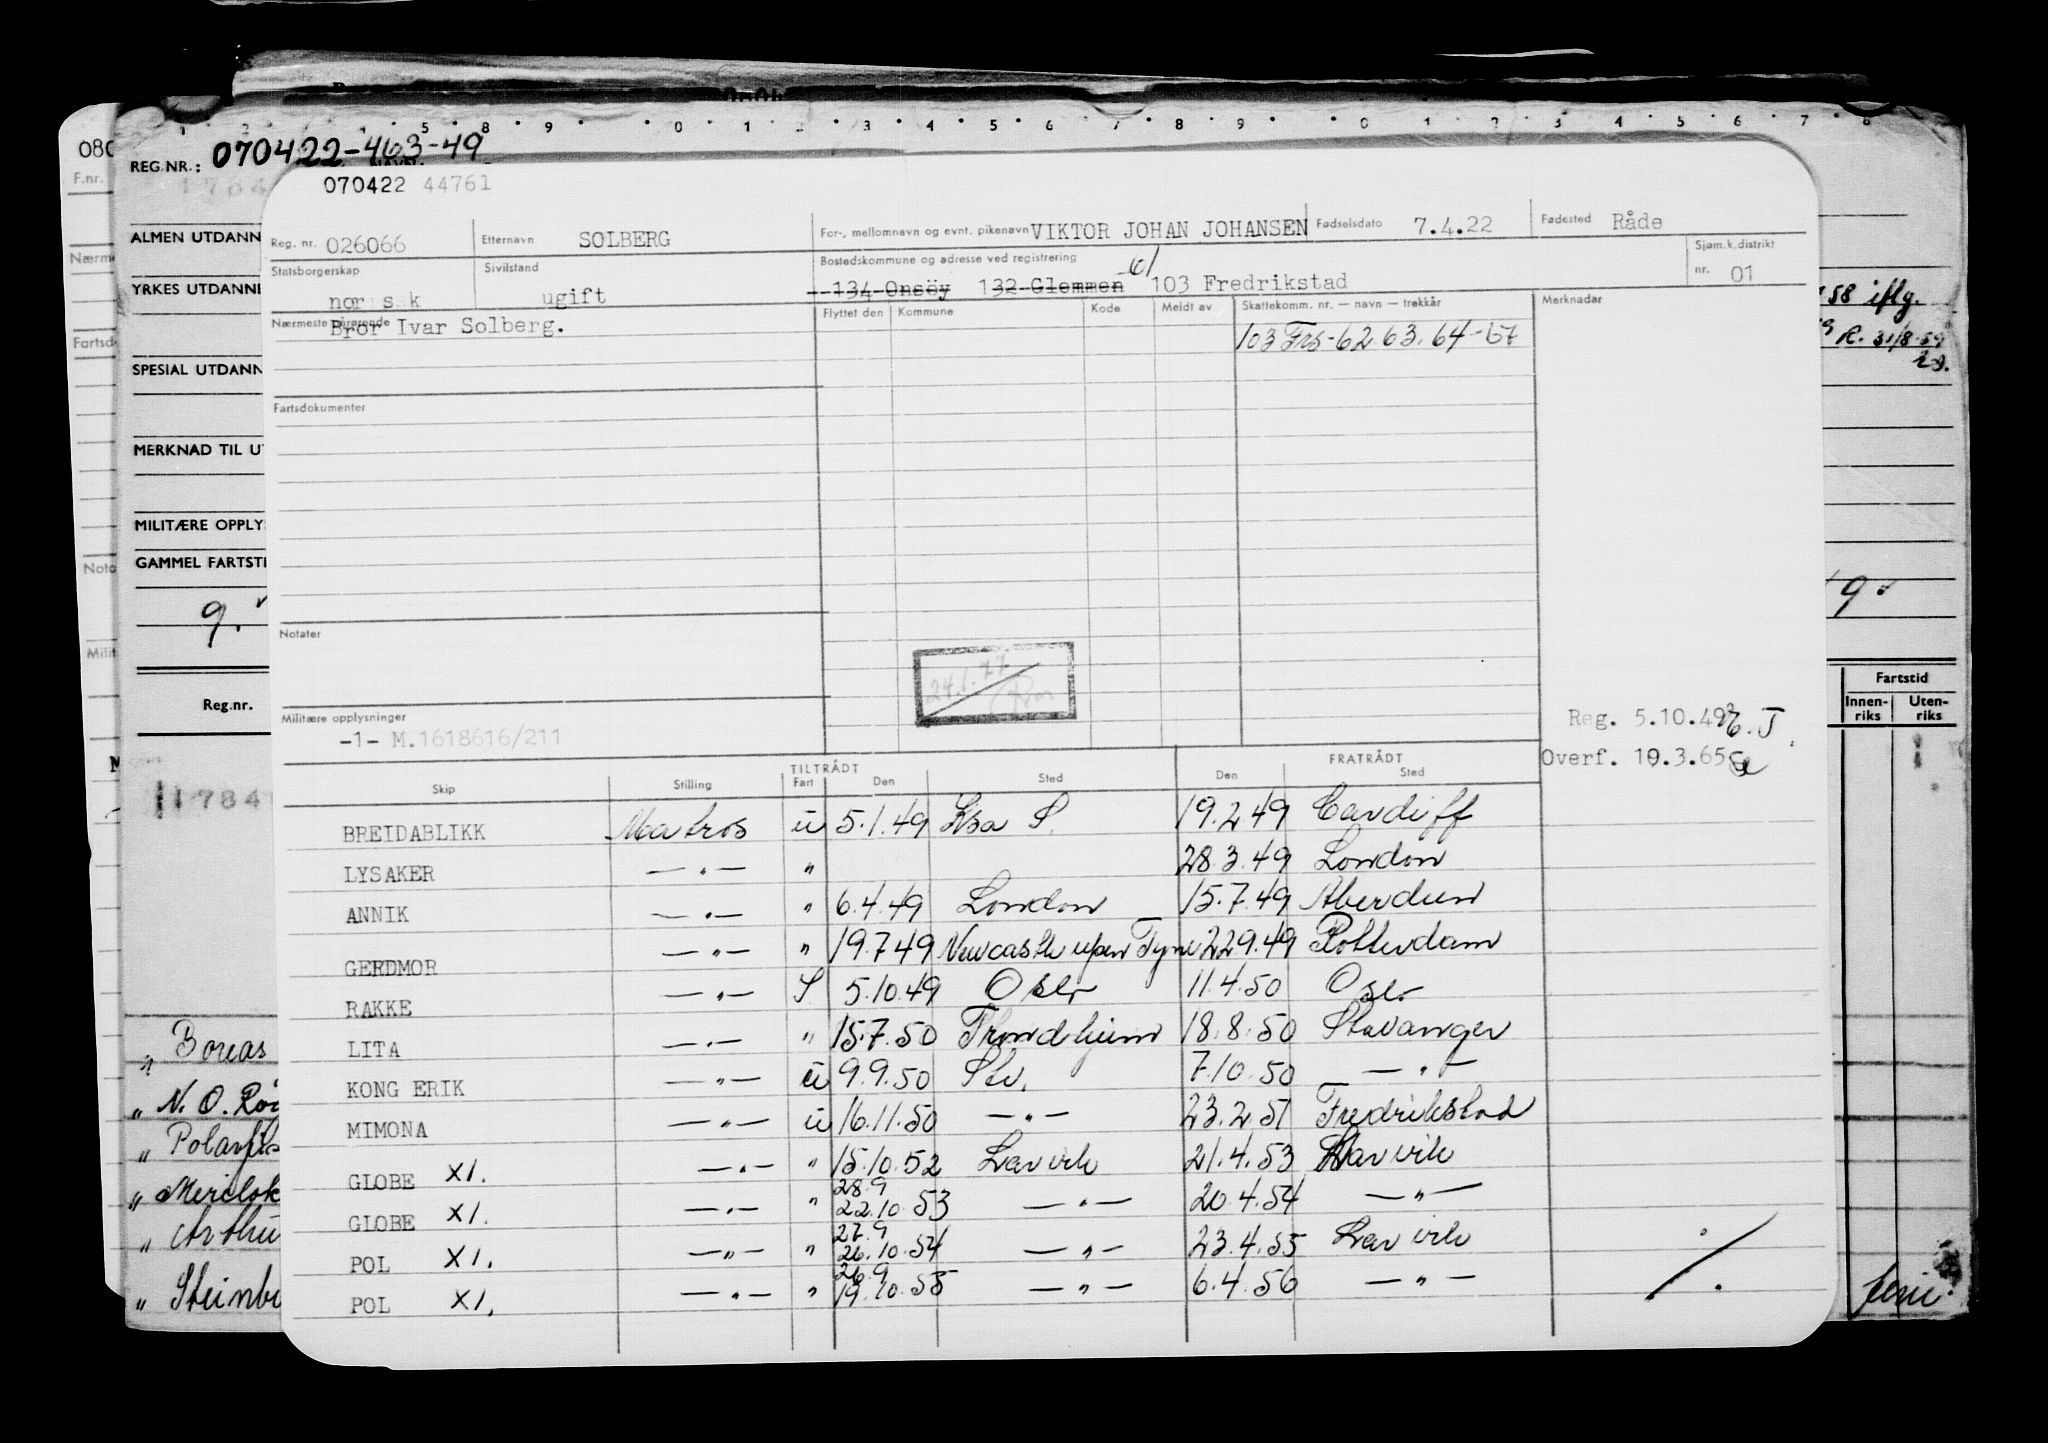 1 2 5 8 9 0 1 2 3 4 5 6 7 8 9 0 1 2 3 4 5 6 7 8
080
REG.NR.: 070422-463-49
F.nr.
070422 44761
ALMEN UTDANN
Reg. nr. 026066 Etternavn SOLBERG For-, mellomnavn og evnt. pikenavn VIKTOR JOHAN JOHANSEN Fødselsdato 7.4.22 Fødested Råde
Nærme
Statsborgerskap norsk Sivilstand ugift Bostedskommune og adresse ved registrering 61 Sjøm.k.distrikt nr. 01
134 Onsöy 132 Glemmen 103 Fredrikstad
YRKES UTDANNE
58 iflg.
Nærmeste pårørende Bror Ivar Solberg. Flyttet den Kommune Kode Meldt av Skattekomm. nr. — navn — trekkår Merknader
103 Frs-62.63.64-67
R. 31/8-59
Fartsd
SPESIAL UTDANN
Fartsdokumenter
MERKNAD TIL U
MILITÆRE OPPLY
GAMMEL FARTSTI
Nota
9.
Notater
Milit
24.1.77
Reg.nr.
Fartstid
Innenriks Utenriks
Militære opplysninger
-1- M.1618616/211
Reg. 5.10.49
Overf. 10.3.65
Skip Stilling TILTRÅDT Fart Den Sted FRATRÅDT Den Sted
1784
BREIDABLIKK Matros u 5.1.49 Lisa S. 19.2.49 Cardiff
LYSAKER —"— " 28.3.49 London
ANNIK —"— " 6.4.49 London 15.7.49 Aberdeen
GERDMOR —"— " 19.7 49 Newcastle upon Tyne 22 9.49 Rotterdam
RAKKE —"— S 5.10.49 Oslo 11.4.50 Oslo
LITA —"— " 15.7.50 Trondhjem 18.8.50 Stavanger
KONG ERIK —"— u 9.9.50 Stv. 7.10.50 —"—
MIMONA —"— u 16.11.50 —"— 23.2.51 Fredrikstad
GLOBE X1. —"— " 15.10.52 Larvik 21.4.53 Larvik
GLOBE X1. —"— " 28.9 22.10.53 —"— 20.4.54 —"—
POL X1. —"— " 27.9 26.10.54 —"— 23.4.55 Larvik
POL X1. —"— " 26.9 19.10.55 —"— 6.4.56 —"—
" Boreas
" N. O. Rø
"
" Mericlok
" Arthu
" Steinbi